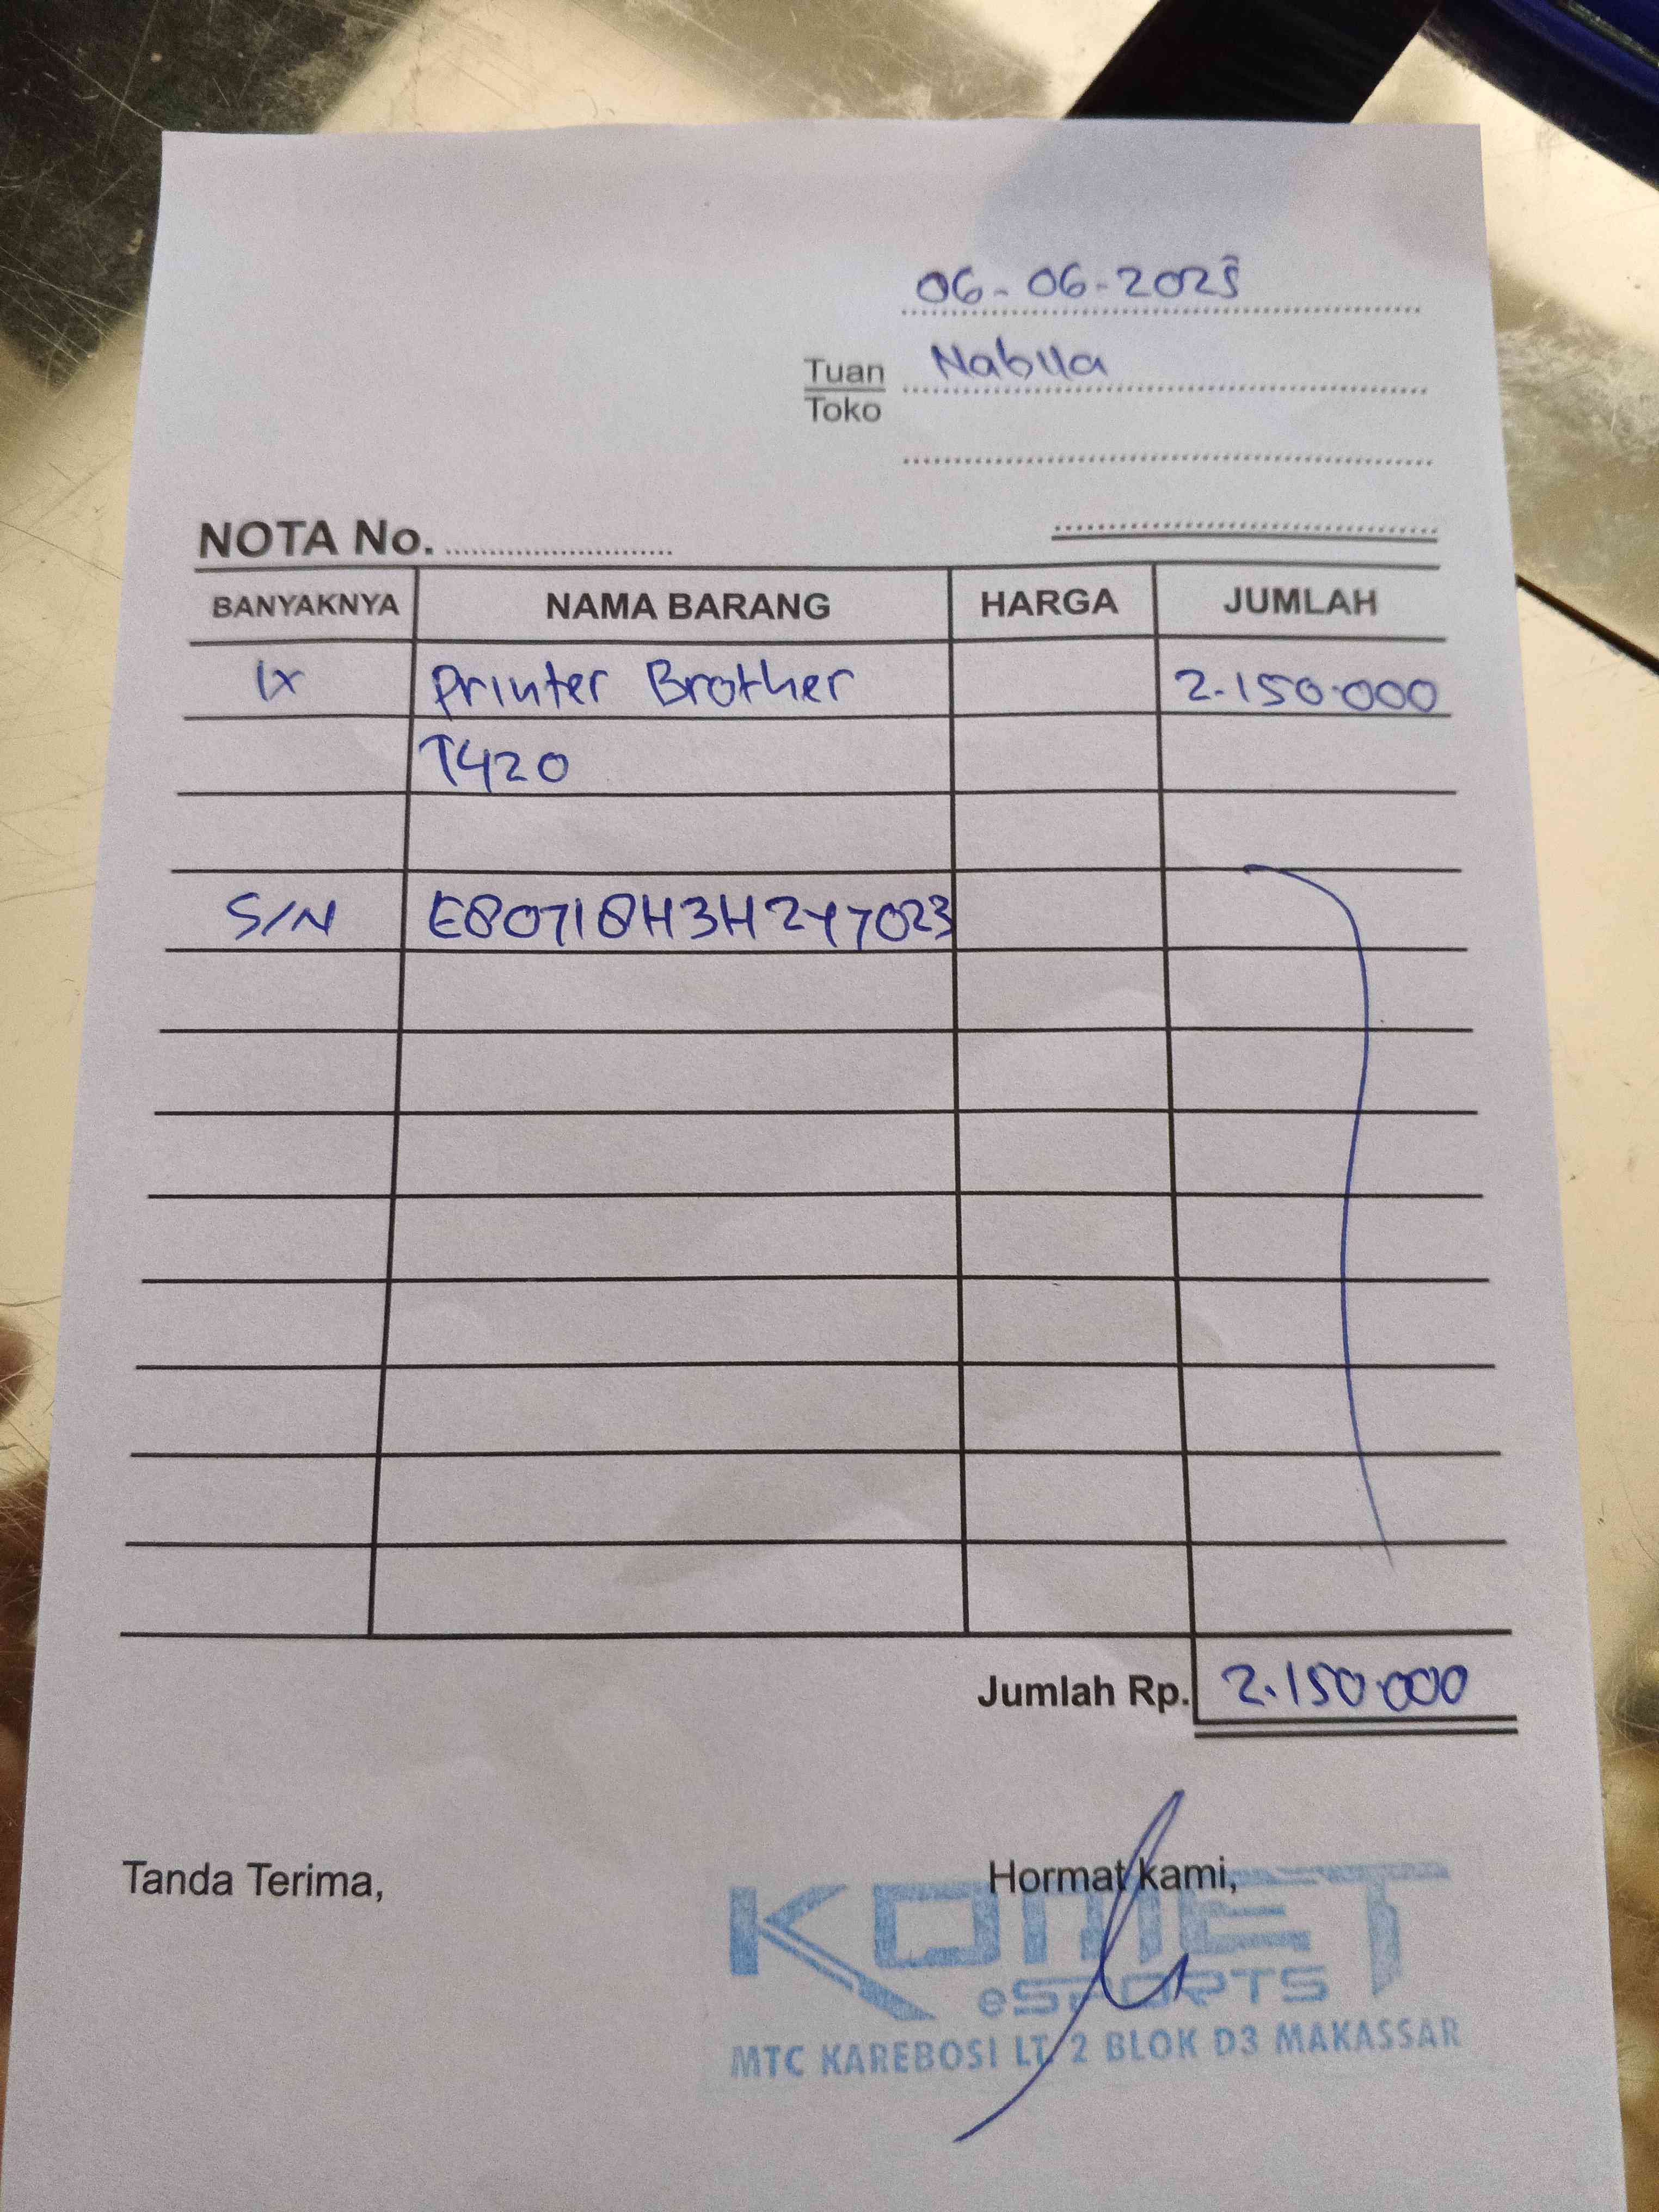 06-06-2025
Tuan Nabila
Toko
NOTA No.
BANYAKNYA NAMA BARANG HARGA JUMLAH
1x Printer Brother 2.150.000
T420
S/N E80718H3H247023
Jumlah Rp. 2.150.000
Tanda Terima, Hormat kami,
KOMET
eSPORTS
MTC KAREBOSI LT. 2 BLOK D3 MAKASSAR